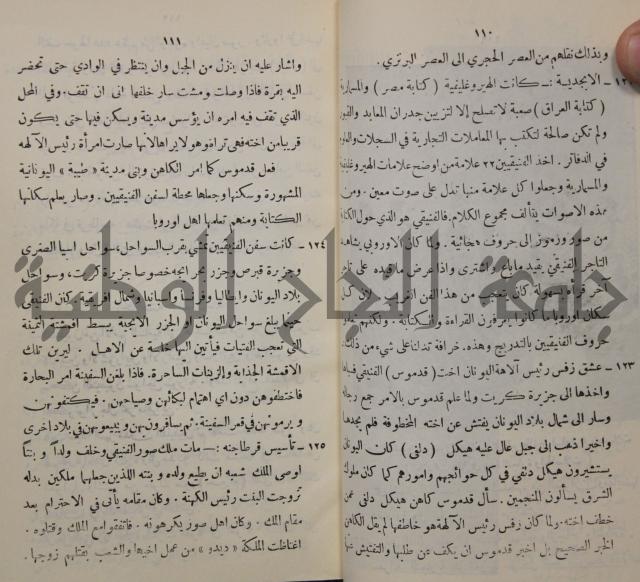 ١١٠
وبذلك نقلهم من العصر الحجري الى العصر البرتري.
الابجدية :— كانت الهيروغليفية ( كتابة مصر ) والمسمارية
( كتابة العراق ) صعبة لا تصلح إلا لتزيين جدران المعابد والقبور
ولم تكن صالحة لتكتب بها المعاملات التجارية في السجلات
في الدفاتر . اخذ الفنيقيين ٢٢ علامة من اوضح علامات الهيروغليفية
والمسمارية وجعلوا كل علامة منها تدل على صوت معين . ومن
هذه الاصوات يتألف مجموع الكلام. فالفنيقي هو الذي حول الكتابة
من صور ورموز الى حروف هجائية . ولما كان الاوروبي يشاهد
التاجر الفنيقي يقيد ما باع واشترى واذا عرض ما قيده على تاجر
آخر قرأه بسهولة كان يتعجب من هذا الفن الغريب لان كل
سكان اوروبا ما كانوا يعرفون القراءة والكتابة . ولكنهم
حروف الفنيقيين بالتدريج وهذه. خرافة تدلنا على شيء من ذلك.
١٢٣ — عشق زفس رئيس آلاهة اليونان اخت ( قدموس ) الفنيقي
واخذها الى جزيرة كريت ولما علم قدموس بالامر جمع رجاله
وسار الى شمال بلاد اليونان يفتش عن اخته المخطوفة فلم يجدها
واخيرا ذهب الى جبل عال عليه هيكل ( دلفي ) كان اليونان
يستشيرون هيكل دلفي في كل حوائجهم وامورهم كما كان ملوك
الشرق يسألون المنجمين . سأل قدموس كاهن هيكل دلفي عمن
خطف اخته. ولما كان زفس رئيس الآلهة هو خاطفها لم يقل الكاهن
الخبر الصحيح بل اخبر قدموس ان يكف عن طلبها والتفتيش عنها
١١١
واشار عليه ان ينزل من الجبل وان ينتظر في الوادي حتى تحضر
اليه بقرة فاذا وصلت ومشت سار خلفها انى ان تقف . وفي المحل
الذي تقف فيه امره ان يؤسس مدينة ويسكن فيها حتى يكون
قريبا من اخته فهي تراه وهو لا يراها لانها صارت امرأة رئيس الآلهة
فعل قدموس كما امر الكاهن وبنى مدينة « طيبة » اليونانية
المشهورة وسكنها وجعلها محطة لسفن الفنيقيين . وصار يعلم سكانها
الكتابة ومنهم تعلمها اهل اوروبا
١٢٤ — كانت سفن الفنيقيين تمشي بقرب السواحل، سواحل اسيا الصغرى
وجزيرة قبرص وجزر بحر ايجه خصوصا جزيرة كريت، وسواحل
بلاد اليونان وايطاليا وفرنسا واسبانيا وشمال افريقية. كان الفنيقي
حينما يبلغ سواحل اليونان او الجزر الايجية يبسط اقمشته الثمينة
التي تعجب الفتيات فيأتين اليها خلسة عن الاهل . ليرين تلك
الاقمشة الجذابة والزينات الساحرة. فاذا بلغن السفينة امر البحارة
فاختطفوهن دون اي اهتمام لبكائهن وصياحهن . فيكتفونهن
و يرمونهن في قعر السفينة: ثم يسافرون بهن ويبيعونهن في بلاد اخرى
١٢٥ — تأسيس قرطاجنه :— مات ملك صور الفنيقي وخلف ولداً و بنتاً
اوصى الملك شعبه ان يطيع ولده و بنته اللذين جعلهما ملكين بدله
تزوجت البنت رئيس الكهنة . وكان مقامه يأتي في الاحترام بعد
مقام الملك . وكان اهل صور يكرهونه . فاتفقوا مع الملك وقتاوه .
اغتاظت الملكة « ديدو » من عمل اخيها والشعب بقتلهم زوجها .
جامعة النجاح الوطنية